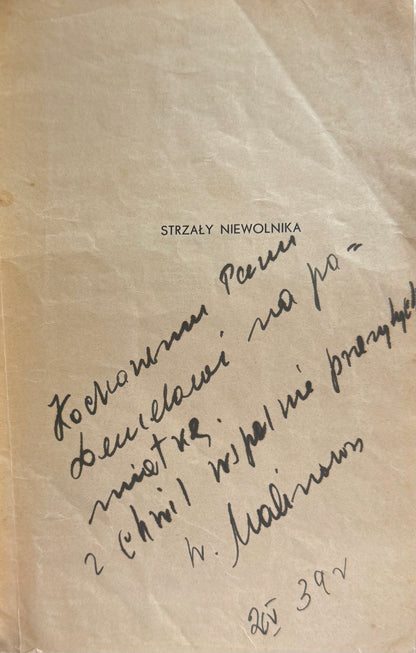 STRZAŁY NIEWOLNIKA
Kochanemu Panu
na pa-
miątkę
z chwil wspólnie przeżytych
w Malinown
39 r